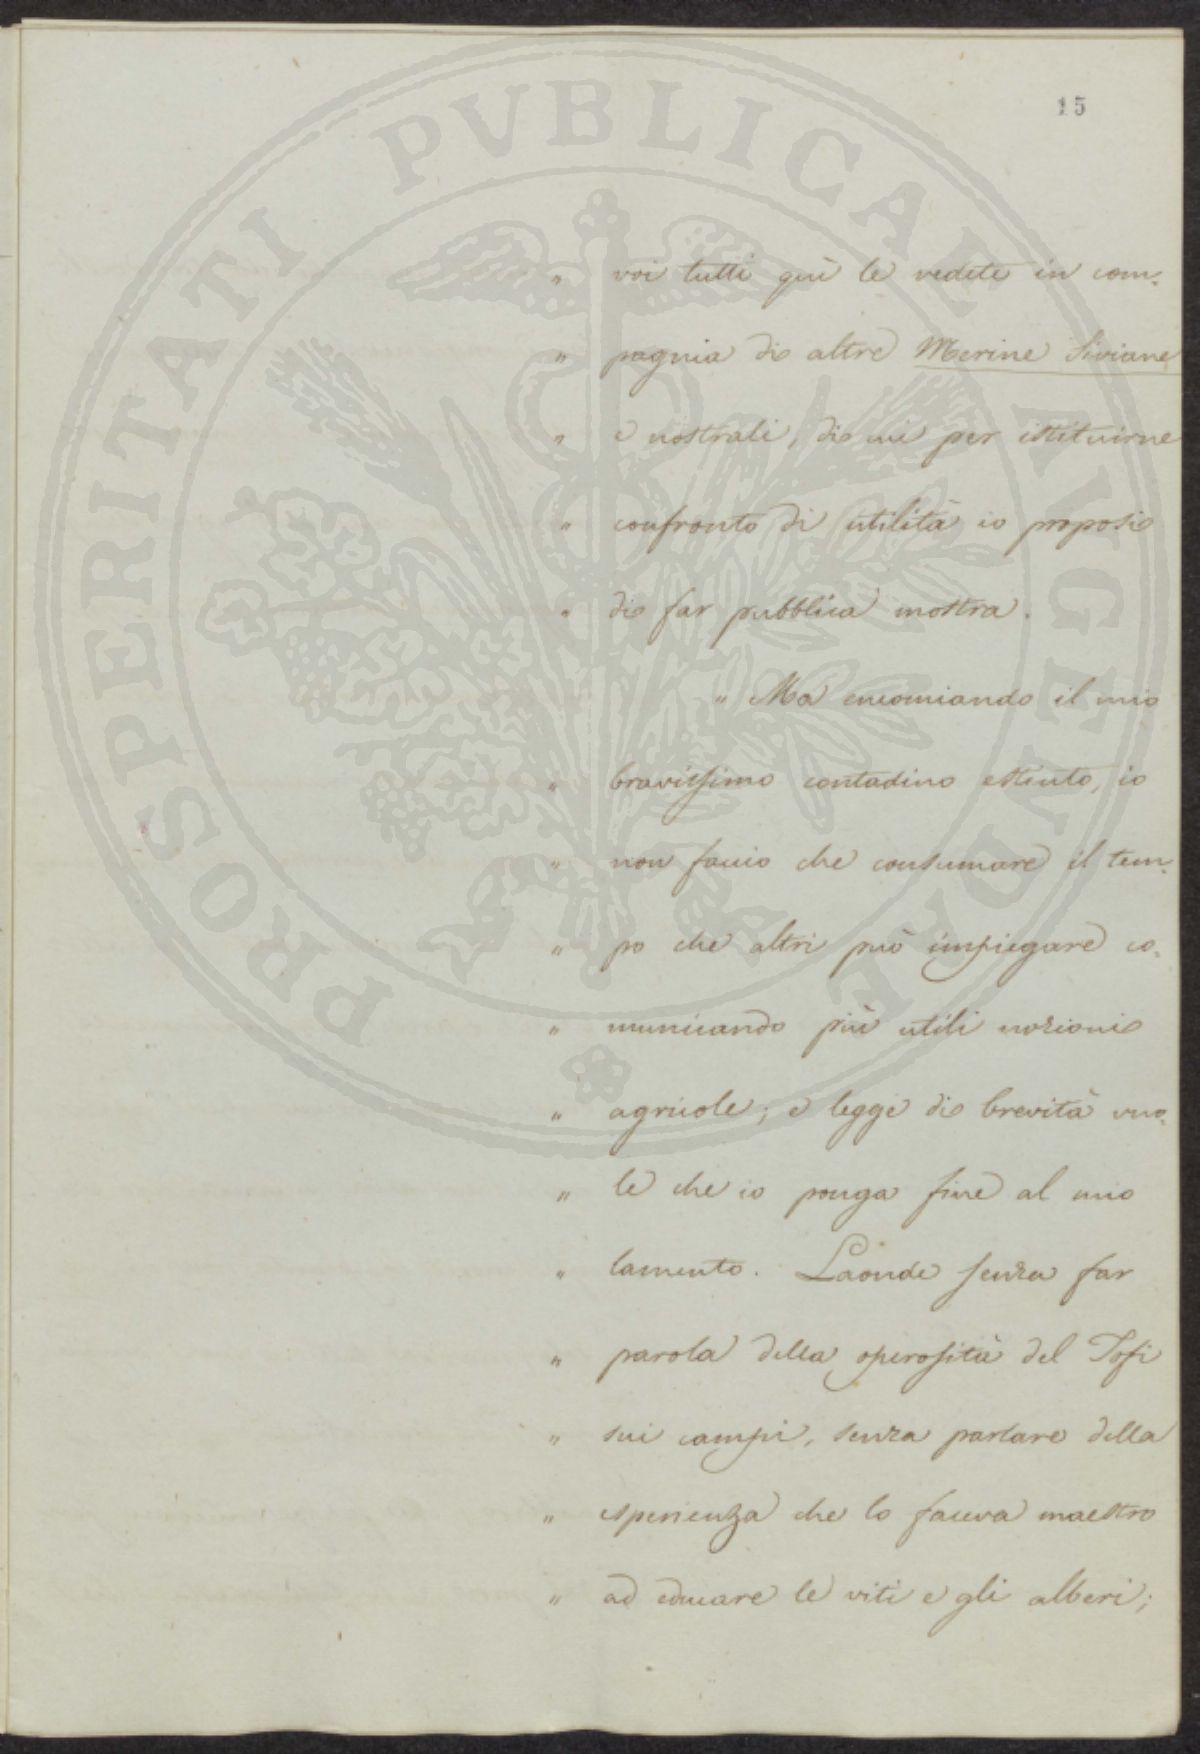 15
PROSPERITATI PVBLICAE AVGENDAE
" voi tutti quì le vedete in com-
" pagnia di altre Merine Siviane
" e nostrali, di cui per istituirne
" confronto di utilità io proposi
" di far pubblica mostra.
" Ma encomiando il mio
" bravissimo contadino estinto, io
" non faccio che consumare il tem-
" po che altri può impiegare co-
" municando più utili nozioni
" agricole; e legge di brevità vuo-
" le che io ponga fine al mio
" lamento. Laonde senza far
" parola della operosità del Tofi
" sui campi, senza parlare della
" esperienza che lo faceva maestro
" ad educare le viti e gli alberi;